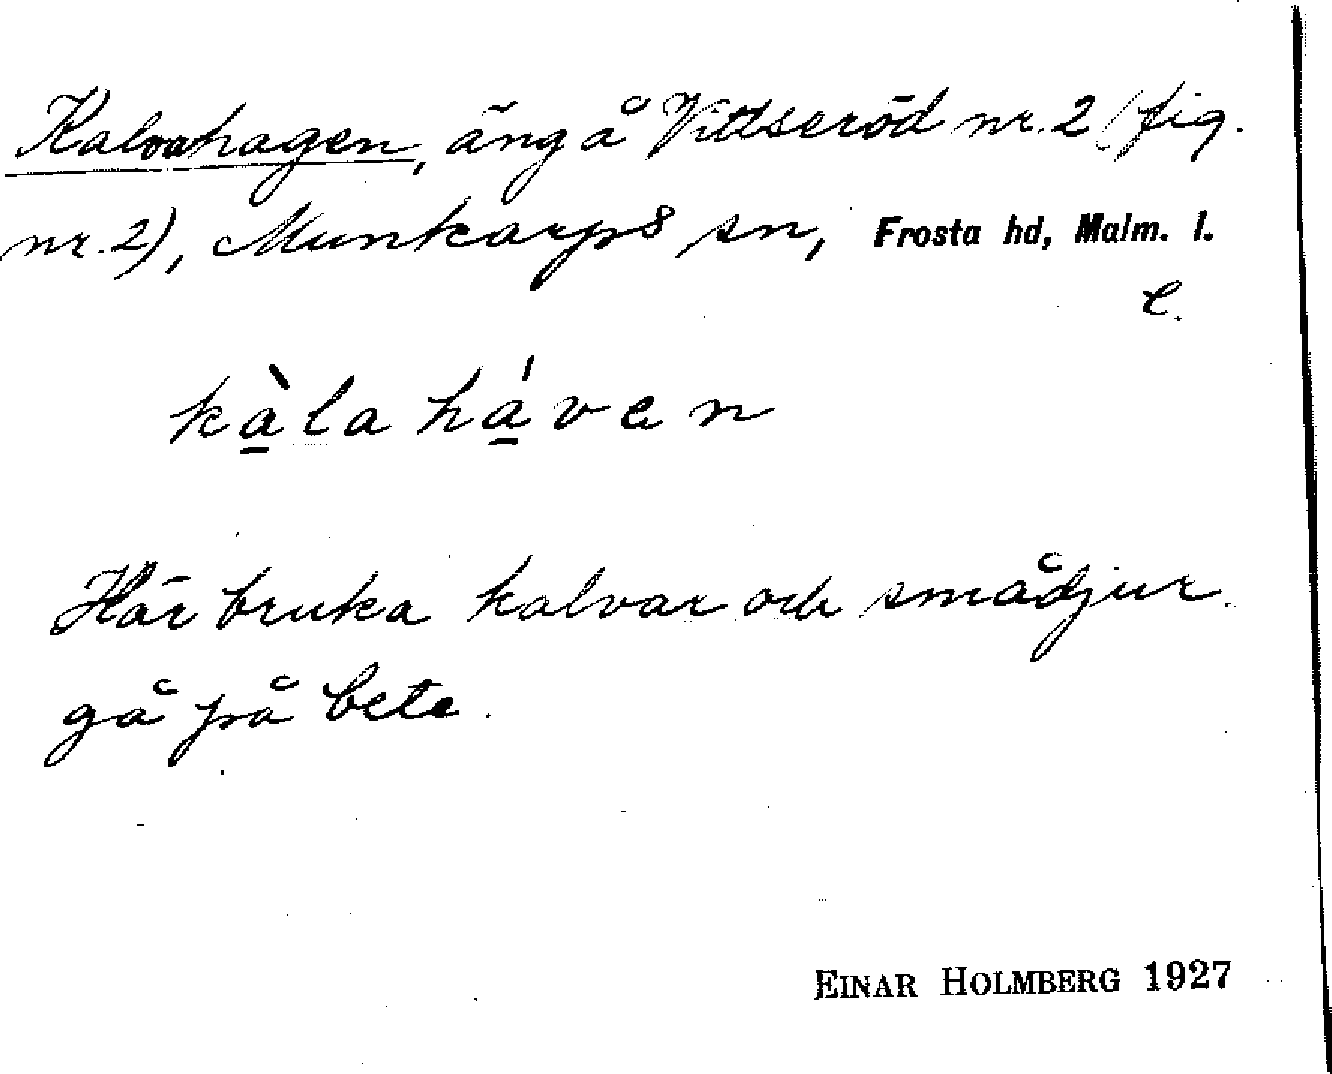 Kalvahagen, äng å Vittseröd nr. 2 (fig.
nr. 2), Munkarps sn, Frosta hd, Malm. l.
e.
kàlaháven
Här bruka kalvar och smådjur
gå på bete.
EINAR HOLMBERG 1927